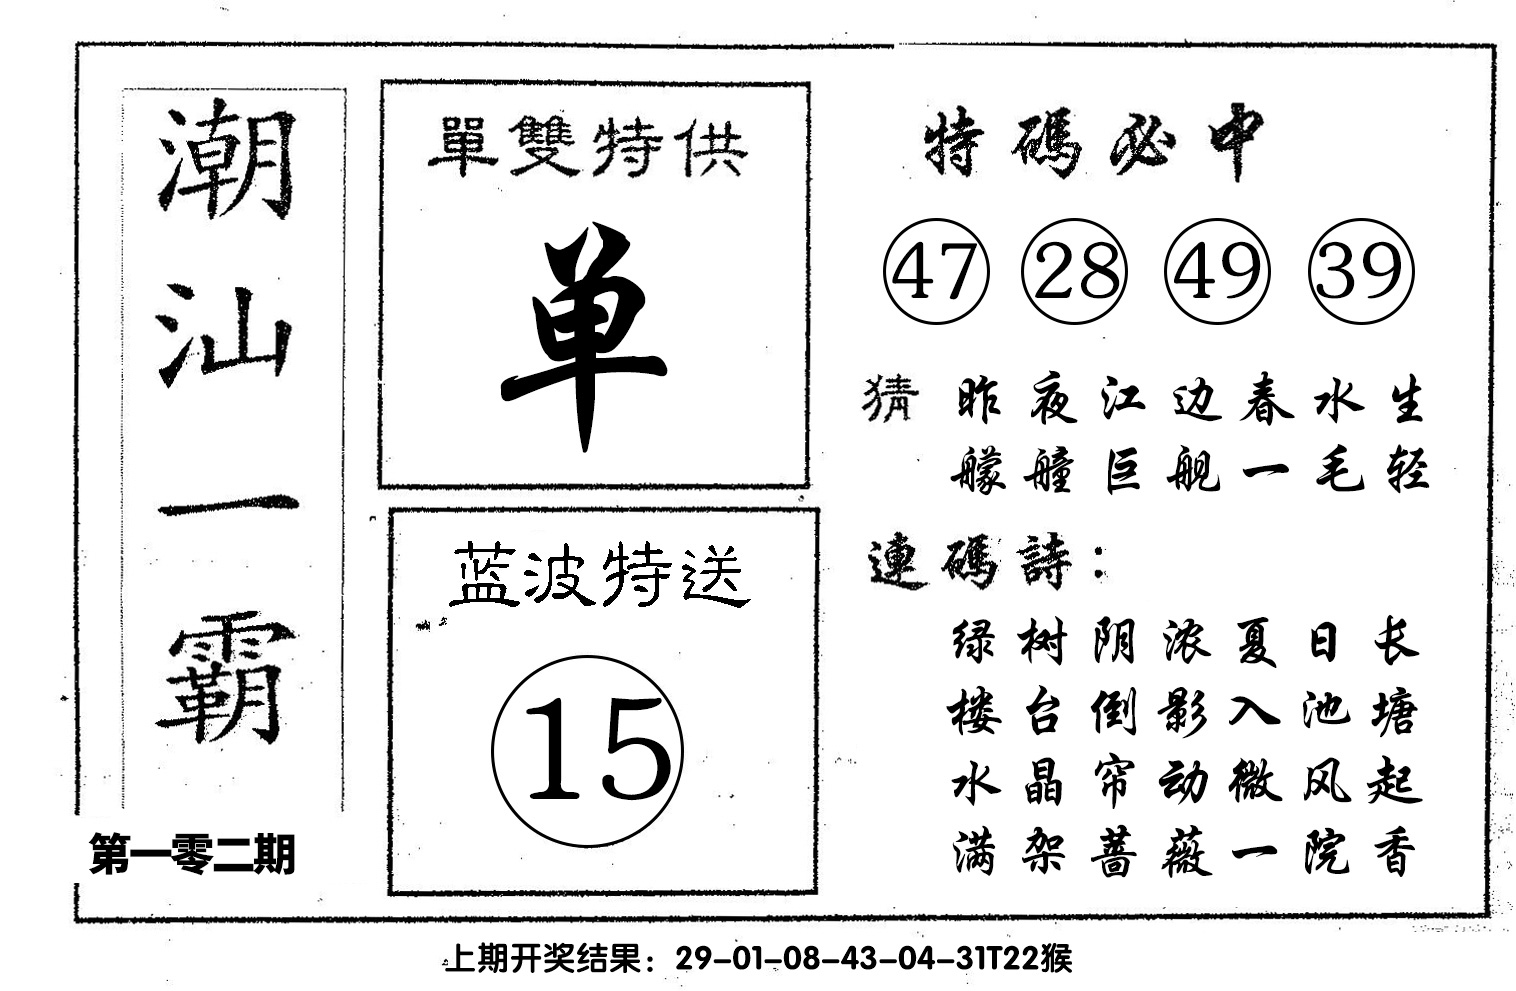 潮汕一霸
第一零二期
單雙特供
单
蓝波特送
15
特碼必中
47 28 49 39
猜 昨夜江边春水生
艨艟巨舰一毛轻
連碼詩：
绿树阴浓夏日长
楼台倒影入池塘
水晶帘动微风起
满架蔷薇一院香
上期开奖结果：29-01-08-43-04-31T22猴